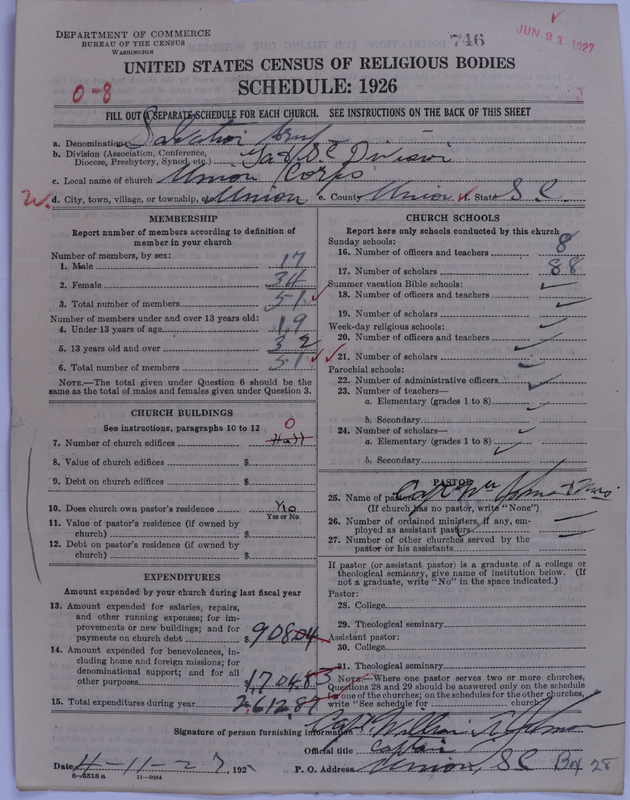 DEPARTMENT OF COMMERCE
BUREAU OF THE CENSUS
WASHINGTON
746
JUN 21 1927
UNITED STATES CENSUS OF RELIGIOUS BODIES
SCHEDULE: 1926
0-8
FILL OUT A SEPARATE SCHEDULE FOR EACH CHURCH. SEE INSTRUCTIONS ON THE BACK OF THIS SHEET
a. Denomination Salvation Army
b. Division (Association, Conference, Diocese, Presbytery, Synod, etc.) Ga & S C Division
c. Local name of church Union Corps
d. City, town, village, or township, etc. Union e. County Union f. State S C
MEMBERSHIP
Report number of members according to definition of member in your church
Number of members, by sex:
1. Male 17
2. Female 34
3. Total number of members 51
Number of members under and over 13 years old:
4. Under 13 years of age 19
5. 13 years old and over 32
6. Total number of members 51
NOTE.—The total given under Question 6 should be the same as the total of males and females given under Question 3.
CHURCH BUILDINGS
See instructions, paragraphs 10 to 12
7. Number of church edifices Hall 0
8. Value of church edifices $
9. Debt on church edifices $
10. Does church own pastor's residence? No
Yes or No
11. Value of pastor's residence (if owned by church) $
12. Debt on pastor's residence (if owned by church) $
EXPENDITURES
Amount expended by your church during last fiscal year
13. Amount expended for salaries, repairs, and other running expenses; for improvements or new buildings; and for payments on church debt $ 908.04
14. Amount expended for benevolences, including home and foreign missions; for denominational support; and for all other purposes $ 1,704.83
15. Total expenditures during year 2,612.87
CHURCH SCHOOLS
Report here only schools conducted by this church
Sunday schools:
16. Number of officers and teachers 8
17. Number of scholars 88
Summer vacation Bible schools:
18. Number of officers and teachers
19. Number of scholars
Week-day religious schools:
20. Number of officers and teachers
21. Number of scholars
Parochial schools:
22. Number of administrative officers
23. Number of teachers—
a. Elementary (grades 1 to 8)
b. Secondary
24. Number of scholars—
a. Elementary (grades 1 to 8)
b. Secondary
PASTOR
25. Name of pastor Capt Wm
(If church has no pastor, write "None")
26. Number of ordained ministers, if any, employed as assistant pastors
27. Number of other churches served by the pastor or his assistants
If pastor (or assistant pastor) is a graduate of a college or theological seminary, give name of institution below. (If not a graduate, write "No" in the space indicated.)
Pastor:
28. College
29. Theological seminary
Assistant pastor:
30. College
31. Theological seminary
NOTE.—Where one pastor serves two or more churches, Questions 28 and 29 should be answered only on the schedule of one of the churches; on the schedules for the other churches, write "See schedule for church
Signature of person furnishing information Capt William
Official title Captain
Date 4-11-27, 192 P. O. Address Union, S C Box 28
8-5518a 11-9054